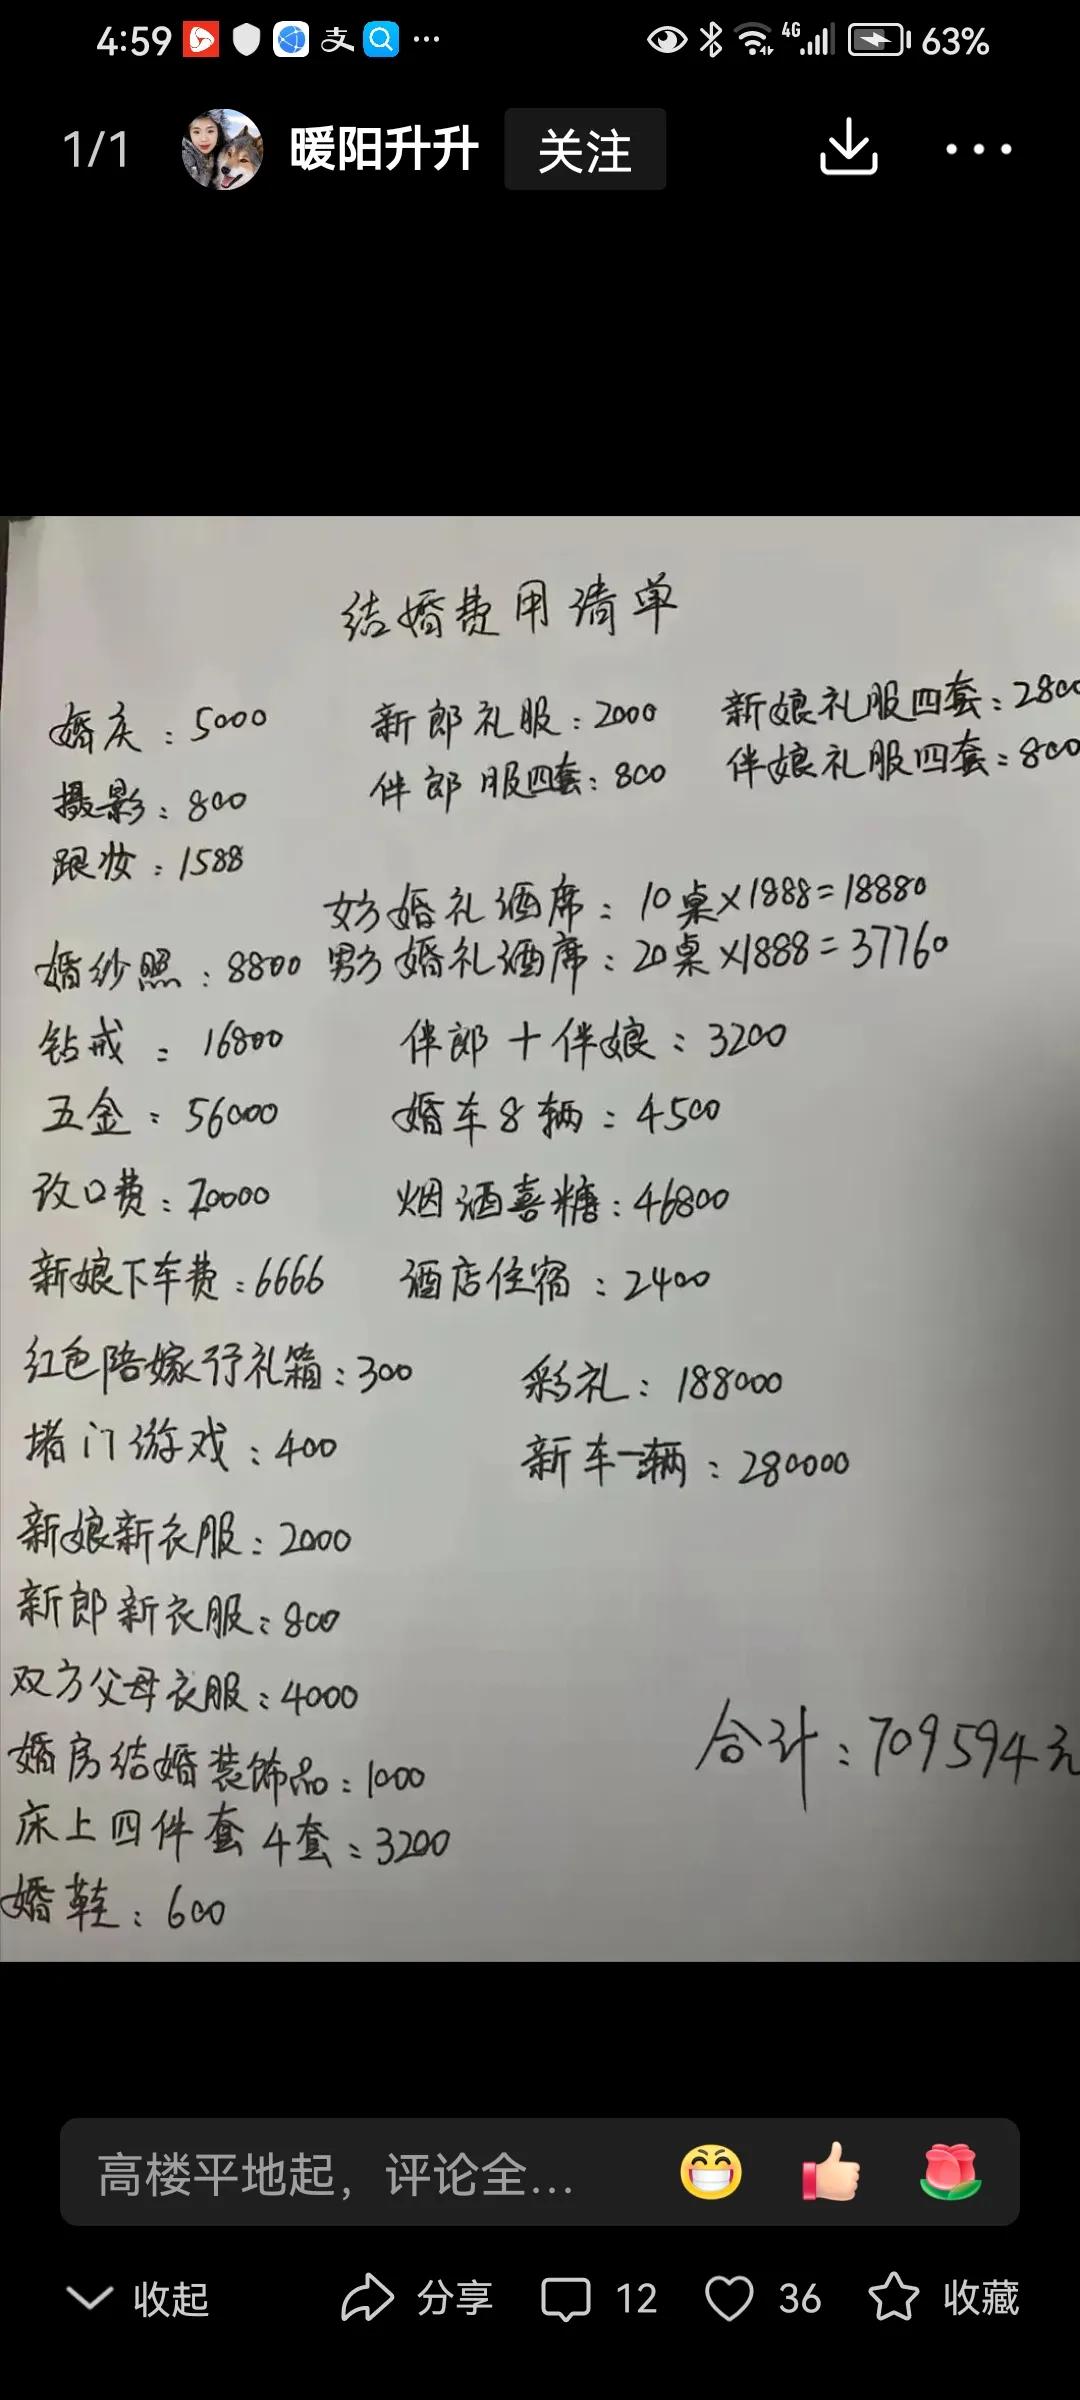 4:59 支 ... 4G 63%
1/1 暖阳升升 关注
结婚费用清单
婚庆：5000 新郎礼服：2000 新娘礼服四套：2800
摄影：800 伴郎服四套：800 伴娘礼服四套：800
跟妆：1588
女方婚礼酒席：10桌×1888=18880
婚纱照：8800 男方婚礼酒席：20桌×1888=37760
钻戒：16800 伴郎+伴娘：3200
五金：56000 婚车8辆：4500
改口费：20000 烟酒喜糖：46800
新娘下车费：6666 酒店住宿：2400
红色陪嫁行礼箱：300 彩礼：188000
堵门游戏：400 新车一辆：280000
新娘新衣服：2000
新郎新衣服：800
双方父母衣服：4000
婚房结婚装饰品：1000 合计：709594元
床上四件套4套：3200
婚鞋：600
高楼平地起，评论全...
收起 分享 12 36 收藏